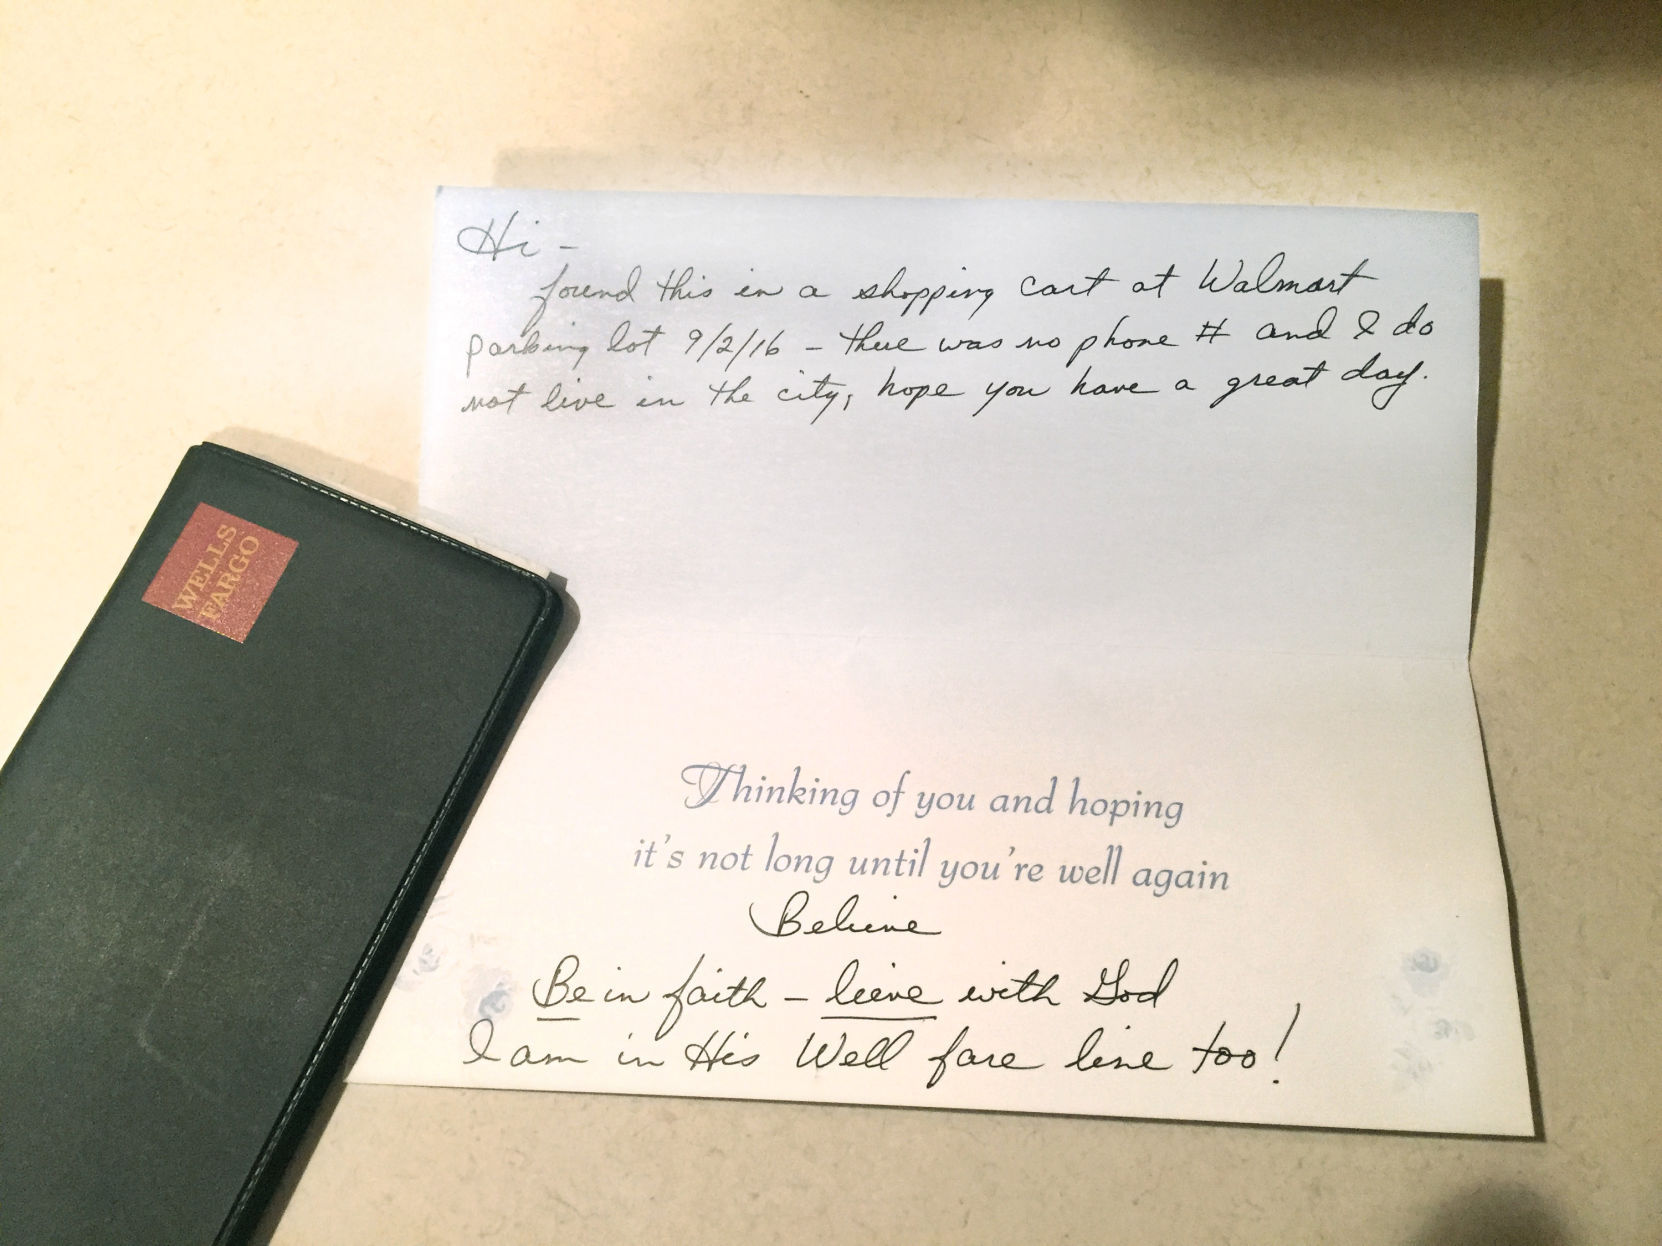 Hi -
found this in a shopping cart at Walmart
parking lot 9/2/16 - there was no phone # and I do
not live in the city, hope you have a great day.
WELLS
FARGO
Thinking of you and hoping
it's not long until you're well again
Believe
Be in faith - lieve with God
I am in His Well fare line too!